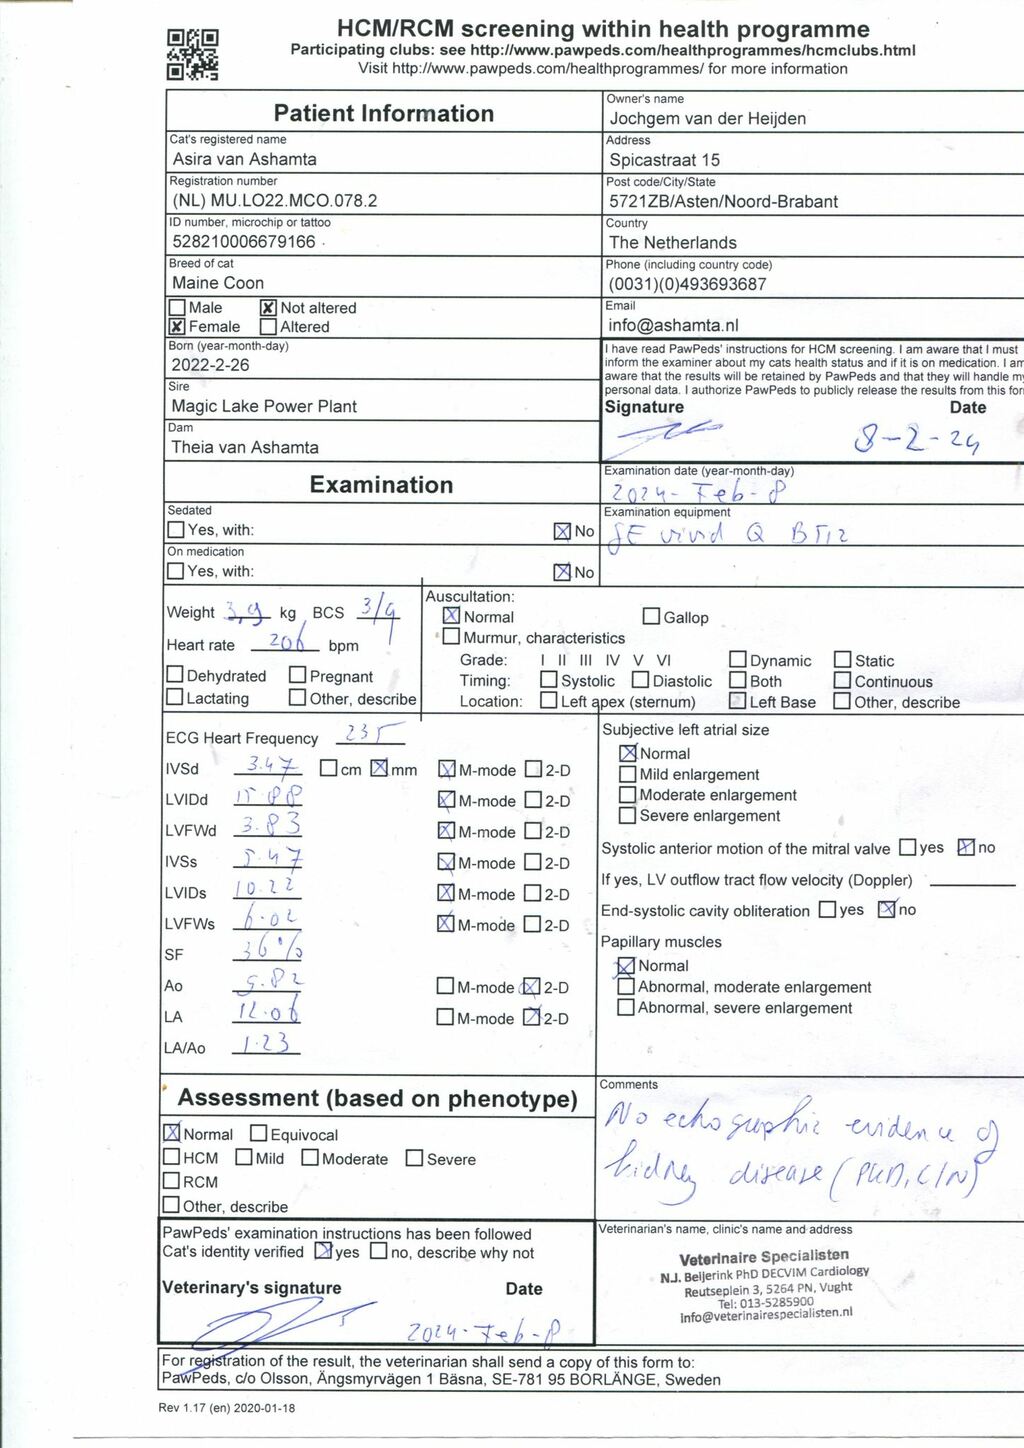 HCM/RCM screening within health programme
Participating clubs: see http://www.pawpeds.com/healthprogrammes/hcmclubs.html
Visit http://www.pawpeds.com/healthprogrammes/ for more information
Patient Information
Owner's name
Jochgem van der Heijden
Cat's registered name
Asira van Ashamta
Address
Spicastraat 15
Registration number
(NL) MU.LO22.MCO.078.2
Post code/City/State
5721ZB/Asten/Noord-Brabant
ID number, microchip or tattoo
528210006679166
Country
The Netherlands
Breed of cat
Maine Coon
Phone (including country code)
(0031)(0)493693687
Male Not altered
Female Altered
Email
info@ashamta.nl
Born (year-month-day)
2022-2-26
Sire
Magic Lake Power Plant
Dam
Theia van Ashamta
I have read PawPeds' instructions for HCM screening. I am aware that I must
inform the examiner about my cats health status and if it is on medication. I am
aware that the results will be retained by PawPeds and that they will handle my
personal data. I authorize PawPeds to publicly release the results from this for
Signature Date
8-2-24
Examination
Examination date (year-month-day)
2024-Feb-8
Sedated
Yes, with: No
Examination equipment
GE vivid Q BT12
On medication
Yes, with: No
Weight 3,9 kg BCS 3/9
Heart rate 206 bpm
Dehydrated Pregnant
Lactating Other, describe
Auscultation:
Normal Gallop
Murmur, characteristics
Grade: I II III IV V VI Dynamic Static
Timing: Systolic Diastolic Both Continuous
Location: Left apex (sternum) Left Base Other, describe
ECG Heart Frequency 235
IVSd 3.47 cm mm M-mode 2-D
LVIDd 15.88 M-mode 2-D
LVFWd 3.83 M-mode 2-D
IVSs 5.47 M-mode 2-D
LVIDs 10.22 M-mode 2-D
LVFWs 6.02 M-mode 2-D
SF 36%
Ao 9.82 M-mode 2-D
LA 12.06 M-mode 2-D
LA/Ao 1.23
Subjective left atrial size
Normal
Mild enlargement
Moderate enlargement
Severe enlargement
Systolic anterior motion of the mitral valve yes no
If yes, LV outflow tract flow velocity (Doppler)
End-systolic cavity obliteration yes no
Papillary muscles
Normal
Abnormal, moderate enlargement
Abnormal, severe enlargement
Assessment (based on phenotype)
Normal Equivocal
HCM Mild Moderate Severe
RCM
Other, describe
Comments
No echographic evidence of
kidney disease (PKD, CIN)
PawPeds' examination instructions has been followed
Cat's identity verified yes no, describe why not
Veterinary's signature Date
2024-Feb-8
Veterinarian's name, clinic's name and address
Veterinaire Specialisten
N.J. Beijerink PhD DECVIM Cardiology
Reutseplein 3, 5264 PN, Vught
Tel: 013-5285900
info@veterinairespecialisten.nl
For registration of the result, the veterinarian shall send a copy of this form to:
PawPeds, c/o Olsson, Ängsmyrvägen 1 Bäsna, SE-781 95 BORLÄNGE, Sweden
Rev 1.17 (en) 2020-01-18